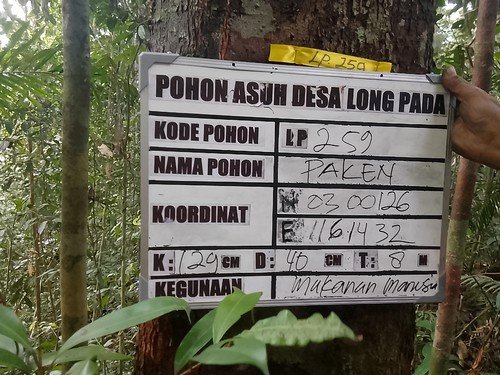 LP 259
POHON ASUH DESA LONG PADA
KODE POHON LP 259
NAMA POHON PAKEN
KOORDINAT N 03 00126
E 1161432
K: 129 CM D: 40 CM T: 8 M
KEGUNAAN Makanan manusia